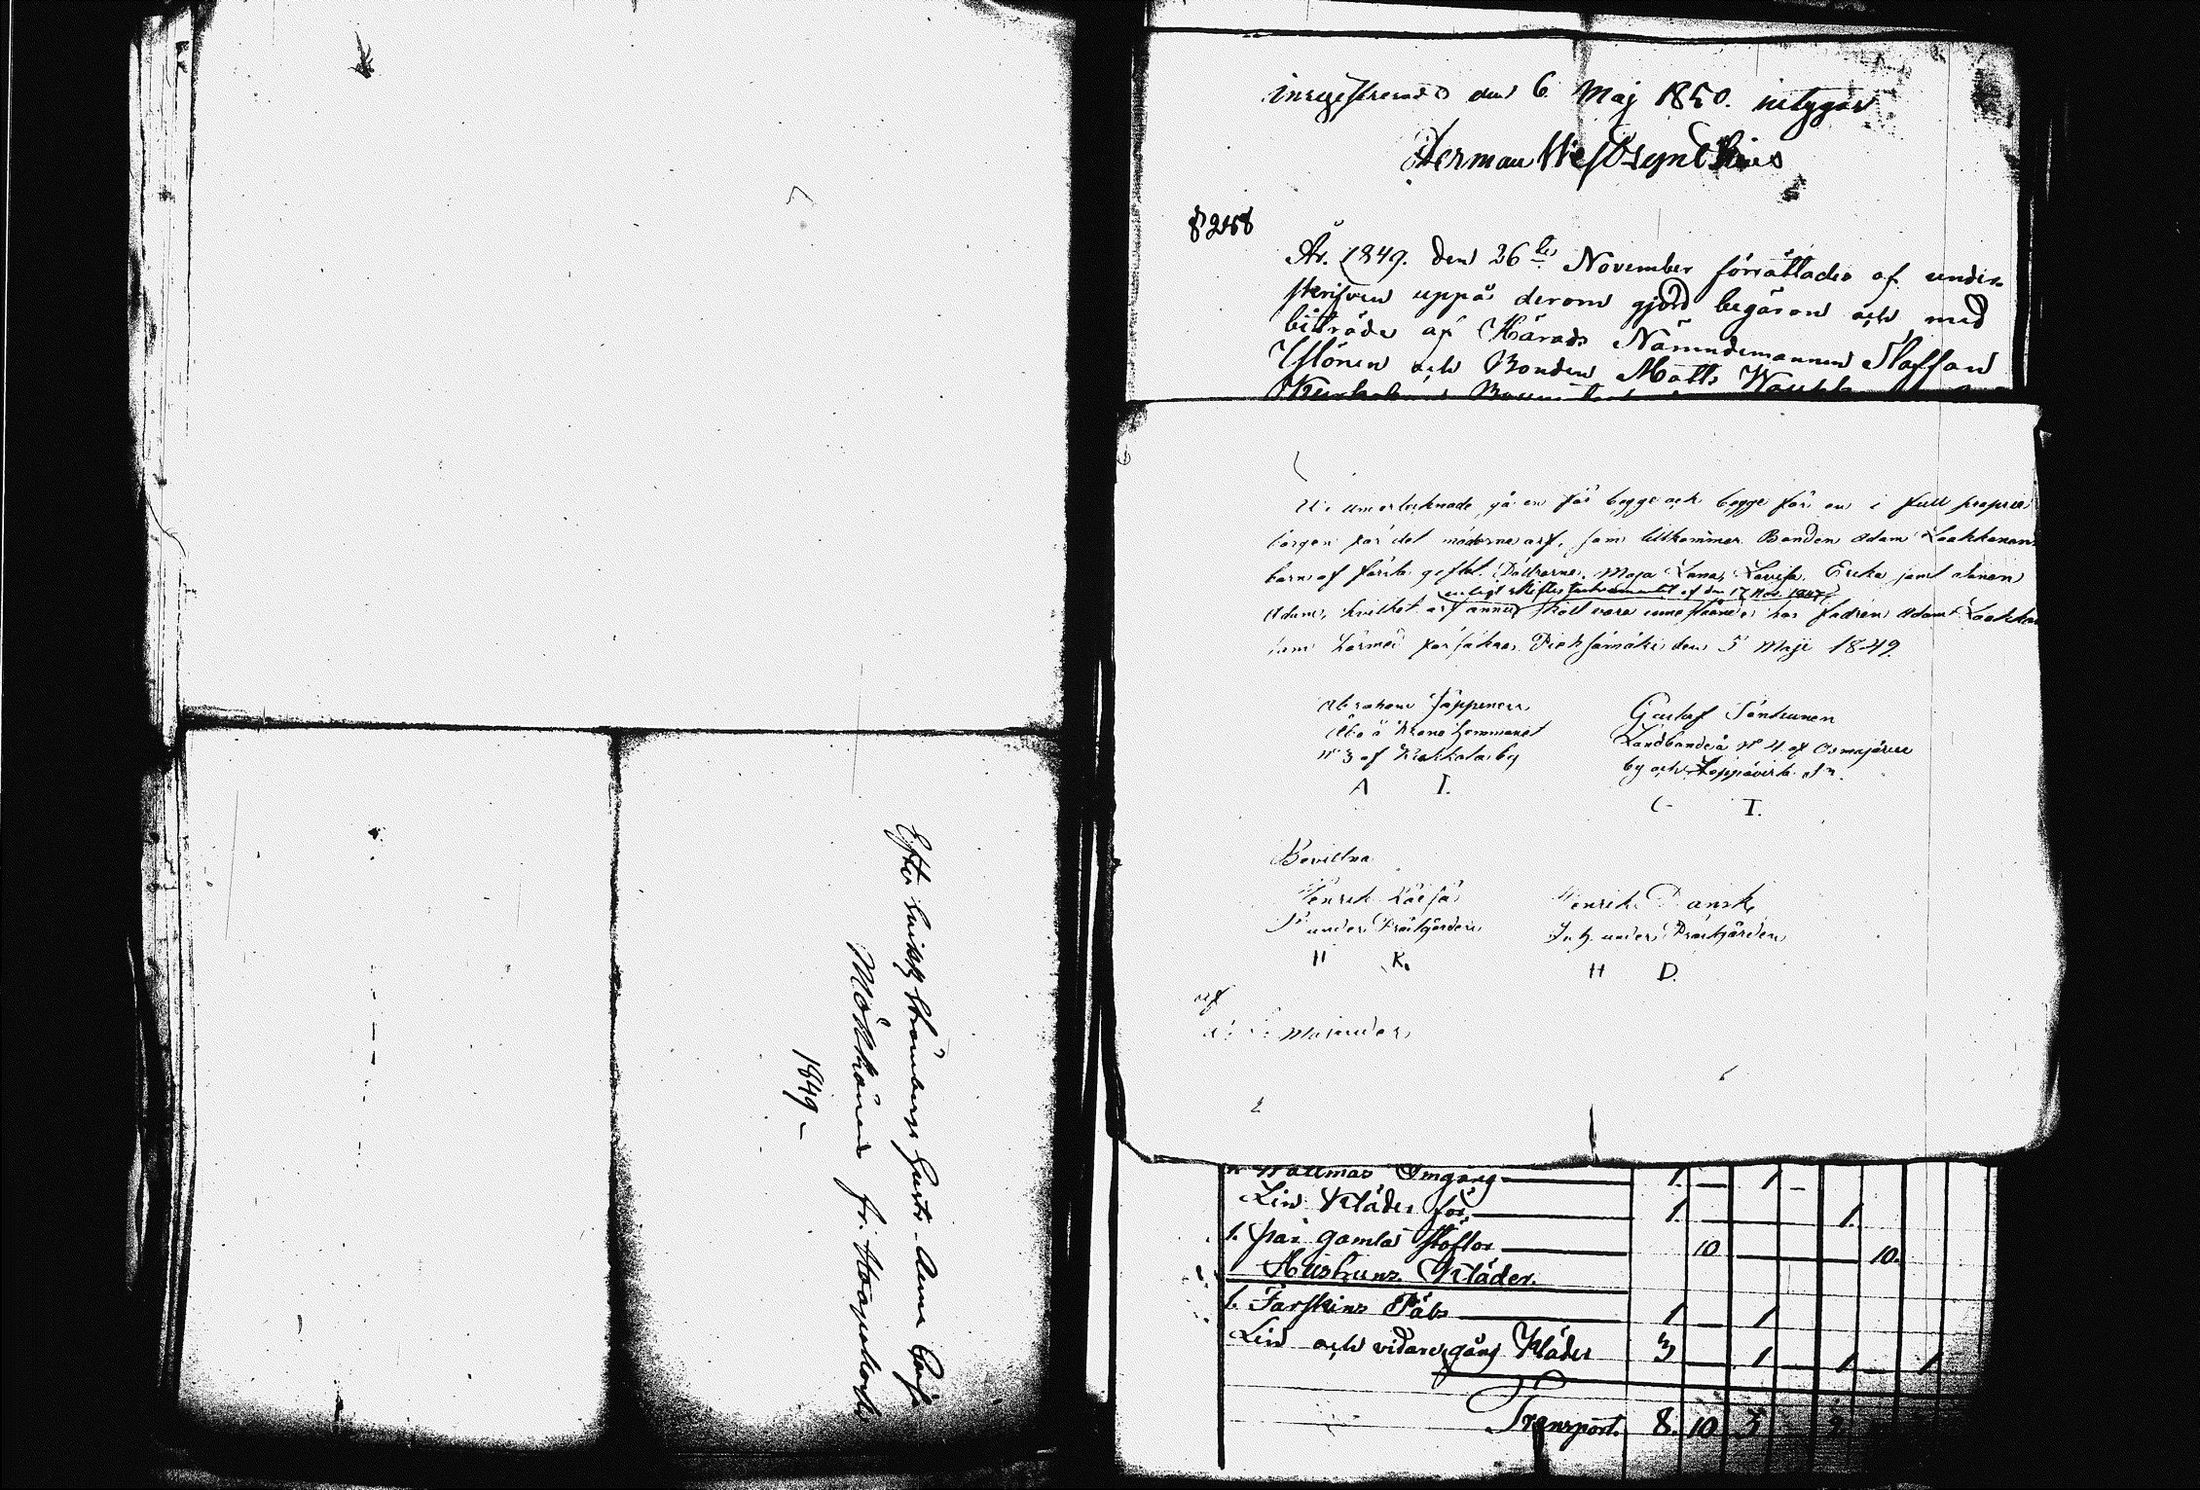 Efter Inhys Strömbergs Hustr. Anna Caisa
Mökkönen fr. Haapakoski
1849 –
inregistrerad den 6 Maj 1850. intygar
Herman
8248
År. 1849. den 26te November förrättades af under-
skrifven uppå derom gjord begäran och med
biträde af Härads Nämndemannen Staffan
Ylönen och Bonden Matts
Vi undertecknade gå en för begge och begge för en i full proprie
borgen för det möderne arf, som tillkommer Bonden Adam Laakkonens
barn af förra giftet, Döttrarne, Maja Lena, Lovisa, Erika samt sonen
enligt skiftes Instrumentet af den 17 Nov. 1847,
Adam, hvilket arf ännu skall vara inne stående hos fadren Adam Laakko
som härmed försäkras. Pieksämäki den 5 Maji 1849.
Abraham Jäppinen
Åbo å Krono hemmanet
N° 3 af Kukkola by
A I.
Gustaf Tenhunen
Landbonde å N° 4 af Osmajärvi
by och Leppävirta Sn.
G T.
Bevittna
Henrik
under Prästgården
H K.
Henrik Dansk,
Inh. under Prästgården
H D.
af
Malander
Wallmas Omgång 1. – 1 –
Lin Kläder för 1. 1.
1. par gamla stöflor 10 10.
Hustruns Kläder.
1. Fårskins Päls 1 1
Lin och vidare gång Kläder 3 1 1 1
Transport. 8. 10 5